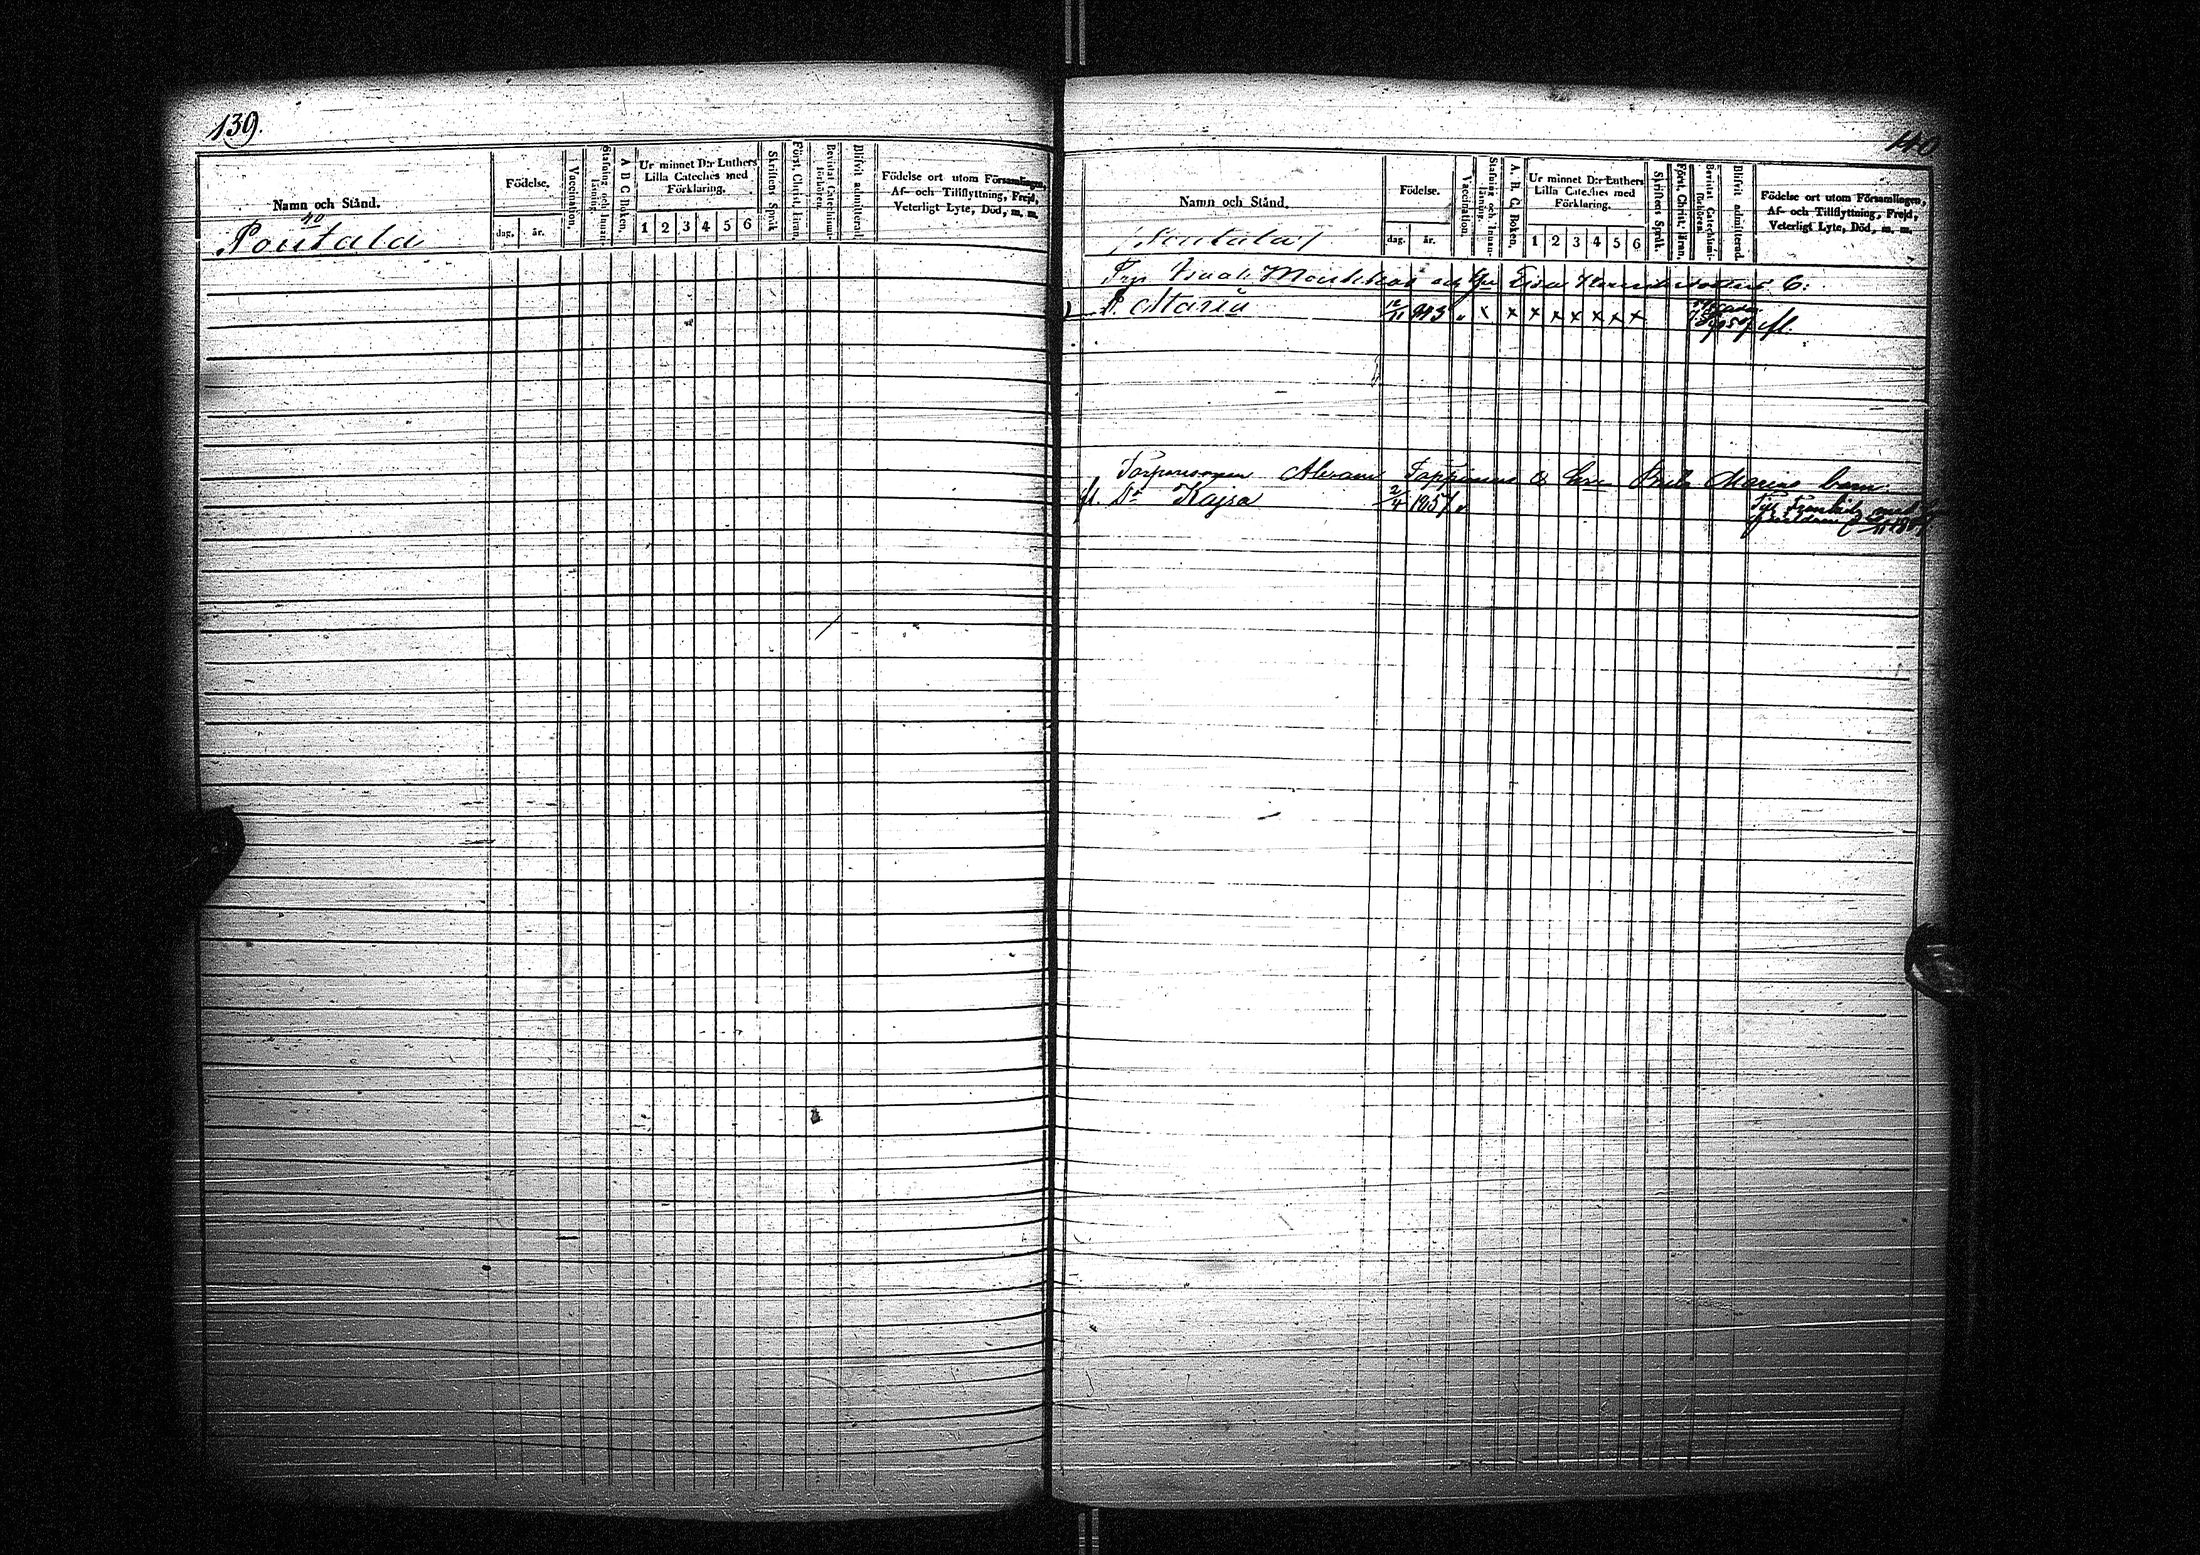 139.
Namn och Stånd.
Födelse.
dag. år.
Vaccination.
Stafning och Innan-
läsning.
A B C Boken.
Ur minnet D:r Luthers
Lilla Cateches med
Förklaring.
1 2 3 4 5 6
Skriftens Språk
Först. Christ. läran.
Bevistat Catechismi-
förhören.
Blifvit admitterad.
Födelse ort utom Församlingen,
Af- och Tillflyttning, Frejd,
Veterligt Lyte, Död, m. m.
Poutala
140
Namn och Stånd.
Födelse.
dag. år.
Vaccination.
Stafning och Innan-
läsning.
A. B. C. Boken.
Ur minnet D:r Luthers
Lilla Cateches med
Förklaring.
1 2 3 4 5 6
Skriftens Språk.
Först. Christ. läran.
Bevistat Catechismi-
förhören.
Blifvit admitterad.
Födelse ort utom Församlingen,
Af- och Tillflyttning, Frejd,
Veterligt Lyte, Död, m. m.
Poutala
D. Maria 12/11 x x x x x x x x fl.
Maria barn.
fl. Dr Kajsa 2/4 1857